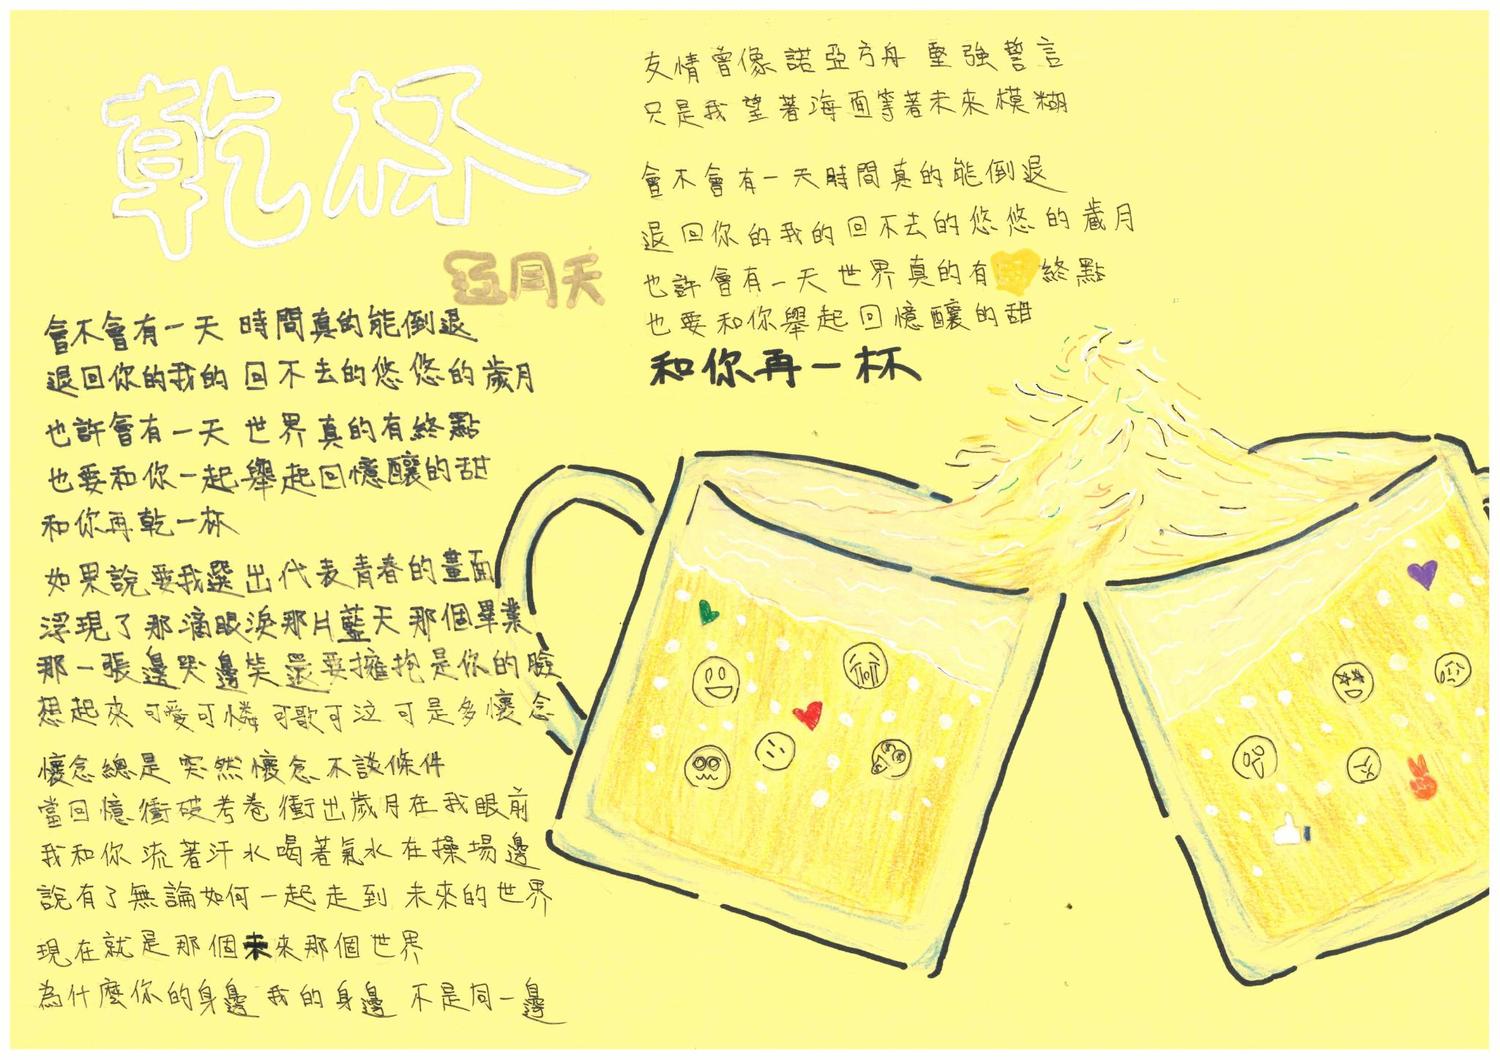 乾杯
五月天
會不會有一天 時間真的能倒退
退回你的我的 回不去的悠悠的歲月
也許會有一天 世界真的有終點
也要和你一起舉起回憶釀的甜
和你再乾一杯
如果說要我選出代表青春的畫面
浮現了那滴眼淚那片藍天那個畢業
那一張邊哭邊笑還要擁抱是你的臉
想起來可愛可憐可歌可泣可是多懷念
懷念總是突然懷念不談條件
當回憶衝破考卷衝出歲月在我眼前
我和你流著汗水喝著氣水在操場邊
說有了無論如何一起走到未來的世界
現在就是那個未來那個世界
為什麼你的身邊我的身邊不是同一邊
友情曾像諾亞方舟 堅強誓言
只是我望著海面等著未來模糊
會不會有一天時間真的能倒退
退回你的我的回不去的悠悠的歲月
也許會有一天世界真的有終點
也要和你舉起回憶釀的甜
和你再一杯